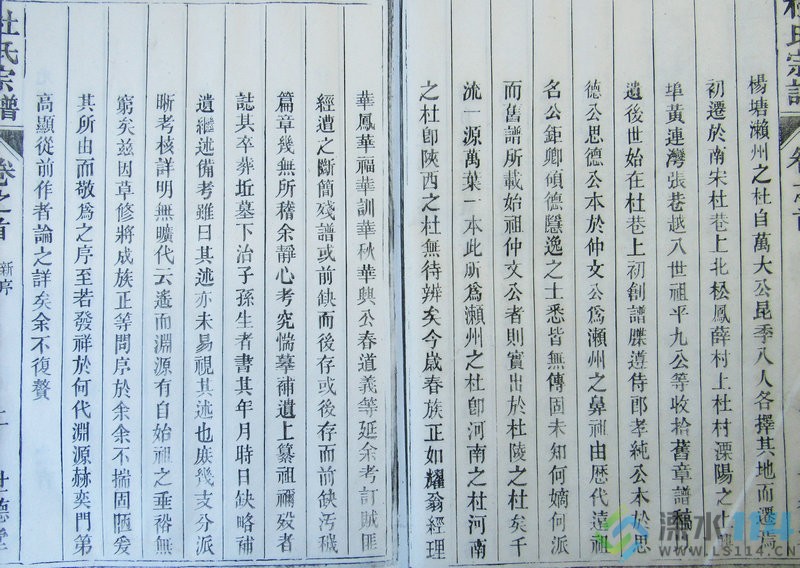 楊塘瀨州之杜自萬大公昆季八人各擇其地而遷焉
初遷於南宋杜巷上北松鳳薛村上杜村溧陽之上
埠黃連灣張巷越八世祖平九公等收拾舊章譜稿
遺後世始在杜巷上初創譜牒遵侍郎孝純公本於思
德公思德公本於仲文公爲瀨州之鼻祖由歷代遠祖
名公鉅卿碩德隱逸之士悉皆無傳固未知何嫡何派
而舊譜所載始祖仲文公者則實出於杜陵之杜矣千
流一源萬葉一本此所爲瀨州之杜卽河南之杜河南
之杜卽陝西之杜無待辨矣今歲春族正如耀翁經理
華鳳華福華訓華秋華興公春道義等延余考訂賊匪
經遭之斷簡殘譜或前缺而後存或後存而前缺汚穢
篇章幾無所稽余靜心考究惴摹補遺上纂祖禰歿者
誌其卒葬坵墓下治子孫生者書其年月時日缺略補
遺繼述備考雖曰其述亦未易視其述也庶幾支分派
晰考核詳明無曠代云遙而淵源有自始祖之垂裕無
窮矣茲因草修將成族正等問序於余余不揣固陋爰
其所由而敬爲之序至若發祥於何代淵源赫奕門第
高顯從前作者論之詳矣余不復贅
杜氏宗譜
卷之首
新序
二
杜氏宗譜
溧水114
WWW.LS114.CN